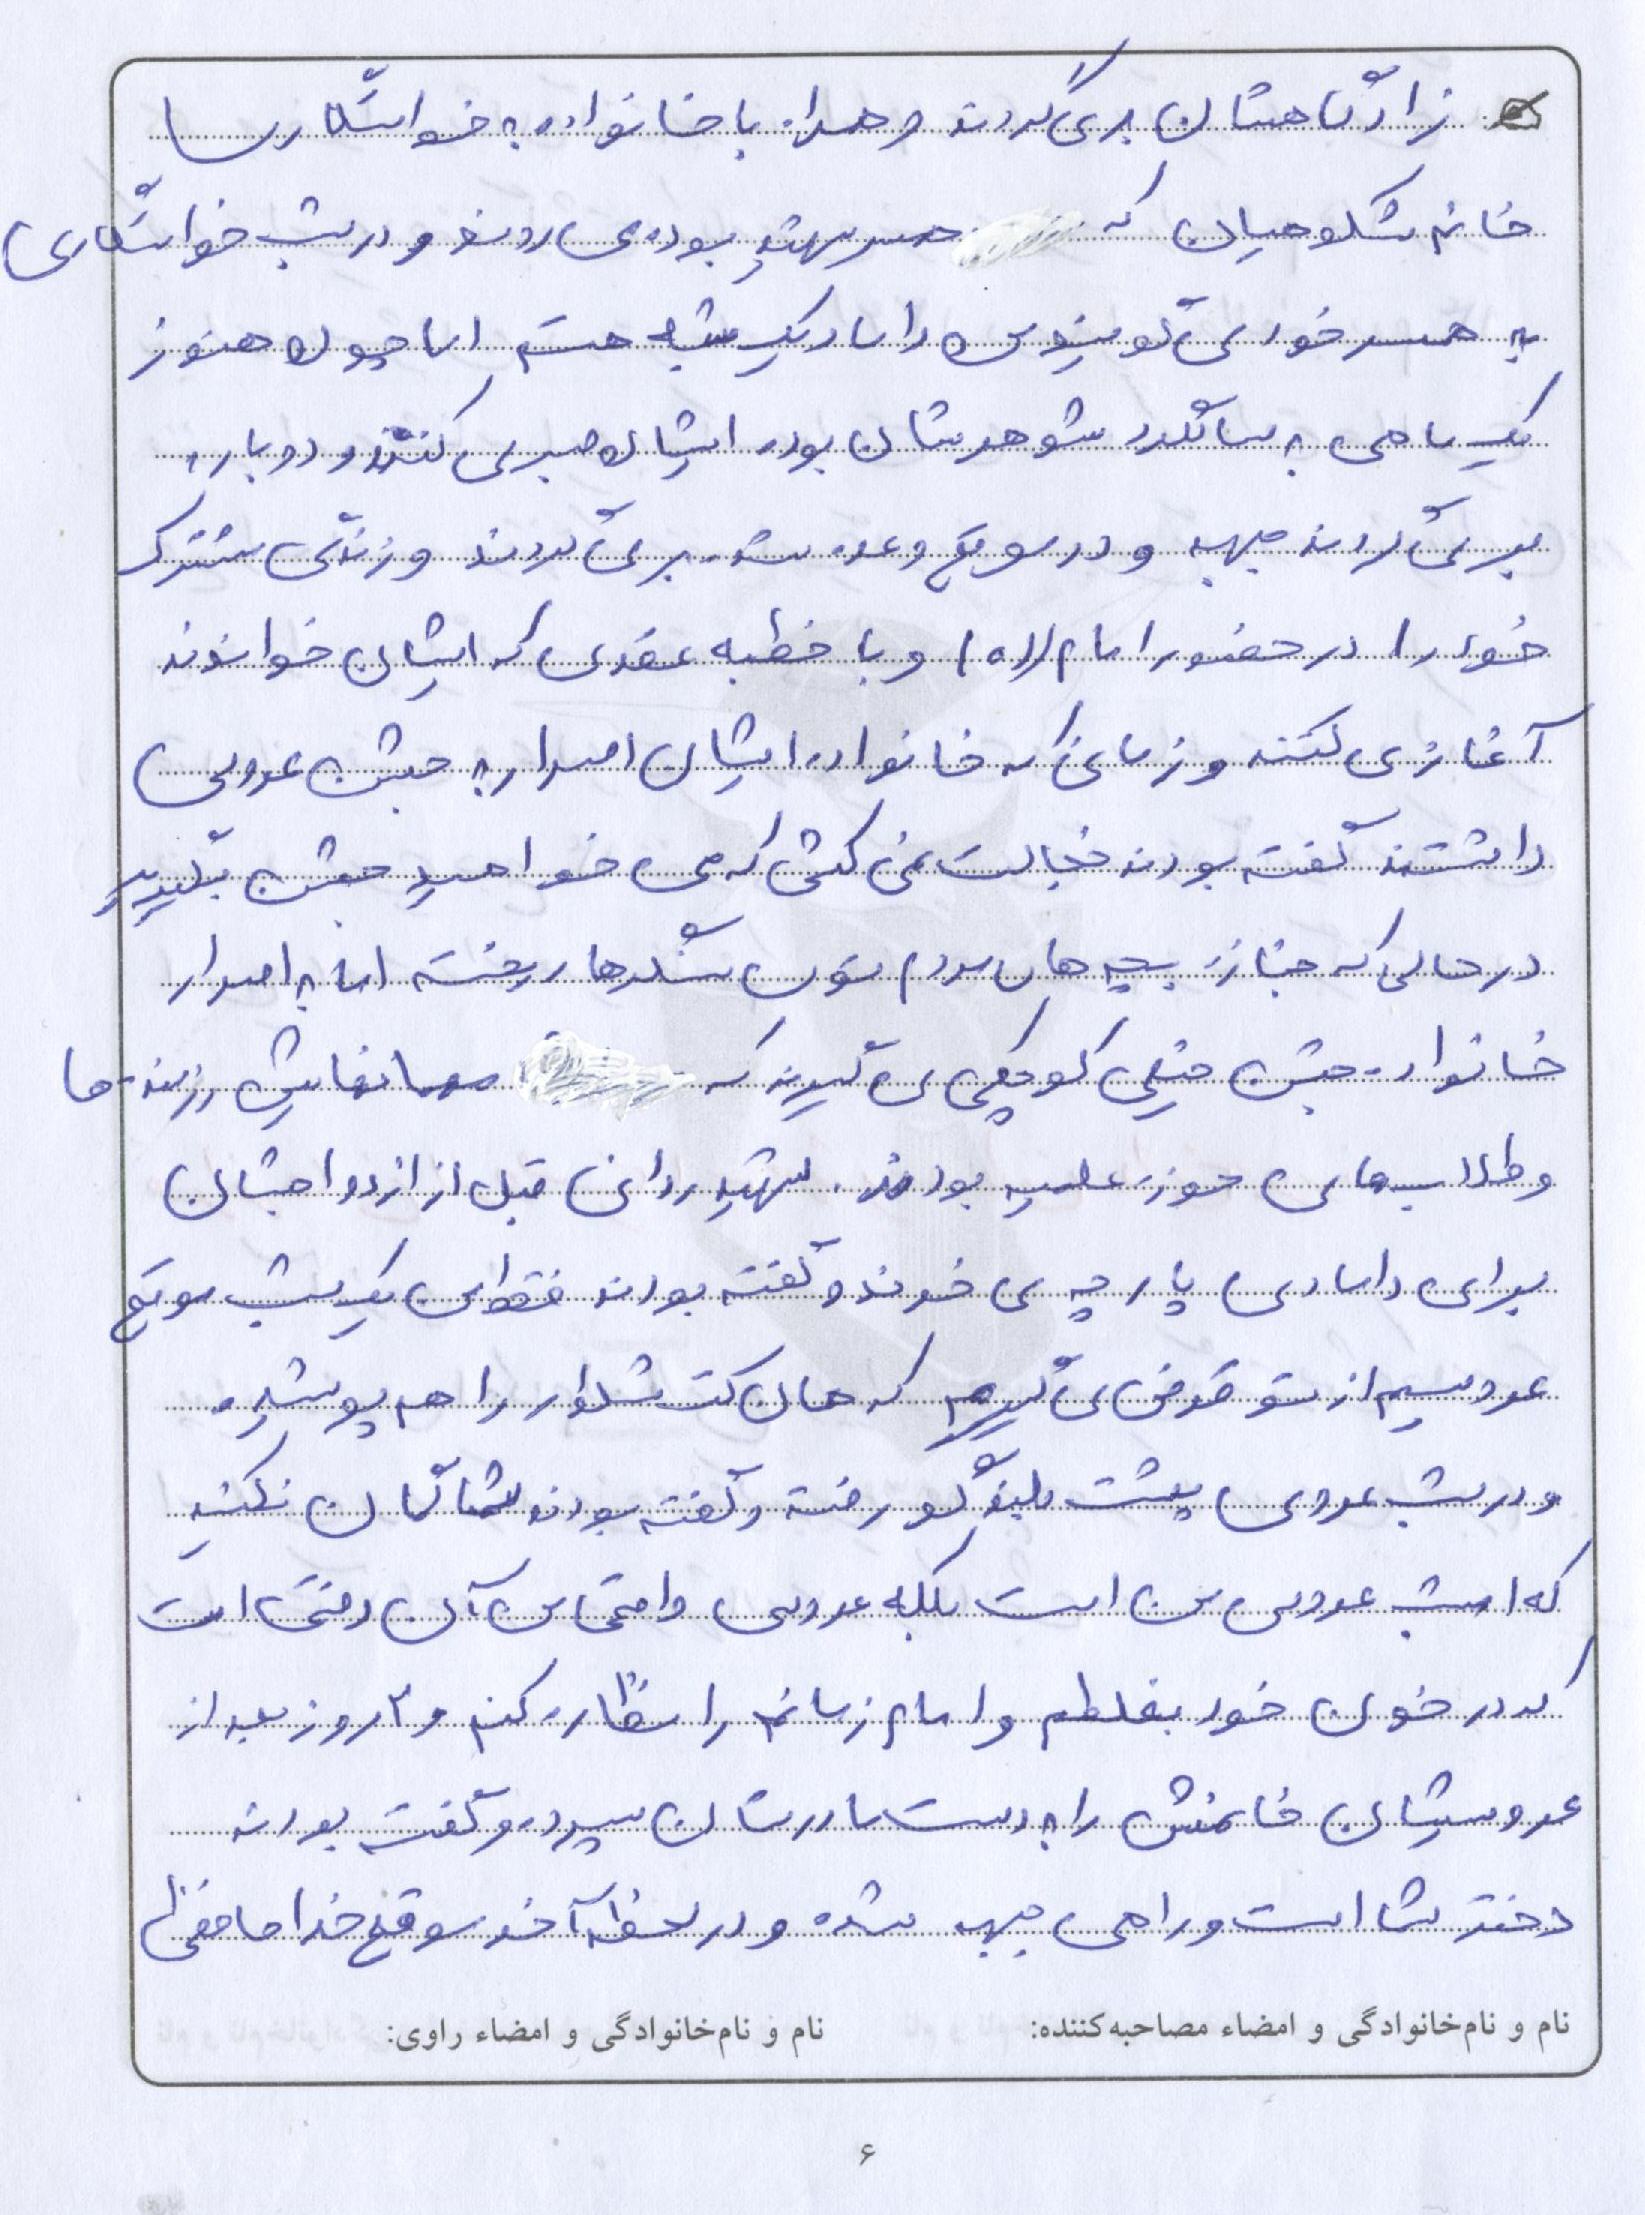 زادگاهشان برمی‌گردند و همراه با خانواده به خواستگاری
خانم شکوهیان که همسر شهید بوده می‌روند و در شب خواستگاری
به همسر خود می‌گویند من داماد یک شبه هستم اما چون هنوز
یک ماهی به سالگرد شوهرشان بوده ایشان صبر می‌کنند و دوباره
برمی‌گردند جبهه و در موقع وعده شده برمی‌گردند و زندگی مشترک
خود را در حضور امام (ره) و با خطبه عقدی که ایشان خواندند
آغاز می‌کنند و زمانی که خانواده ایشان اصرار به جشن عروسی
داشتند گفته بودند خجالت نمی‌کشی که می‌خواهید جشن بگیرید
در حالی که جنازه بچه‌های مردم توی سنگرها ریخته اما به اصرار
خانواده جشن خیلی کوچکی می‌گیرند که مهمانهایش رزمنده‌ها
و طلاب‌های حوزه علمیه بودند. شهید ردانی قبل از ازدواجشان
برای دامادی پارچه می‌خرند و گفته بودند فقط این یک شب موقع
عروسیم از تو قرض می‌گیرم که همان کت شلوار را هم پوشیده
و در شب عروسی پشت بلندگو رفته و گفته بودند شما گمان نکنید
که امشب عروسی من است بلکه عروسی واقعی من آن وقتی است
که در خون خود بغلطم و امام زمانم را نظاره کنم و ۲ روز بعد از
عروسیشان خانمش را به دست مادرشان سپرده و گفته بودند
دختر شما است و راهی جبهه شده و در لحظه آخر موقع خداحافظی
نام و نام‌خانوادگی و امضاء مصاحبه‌کننده: نام و نام‌خانوادگی و امضاء راوی:
۶